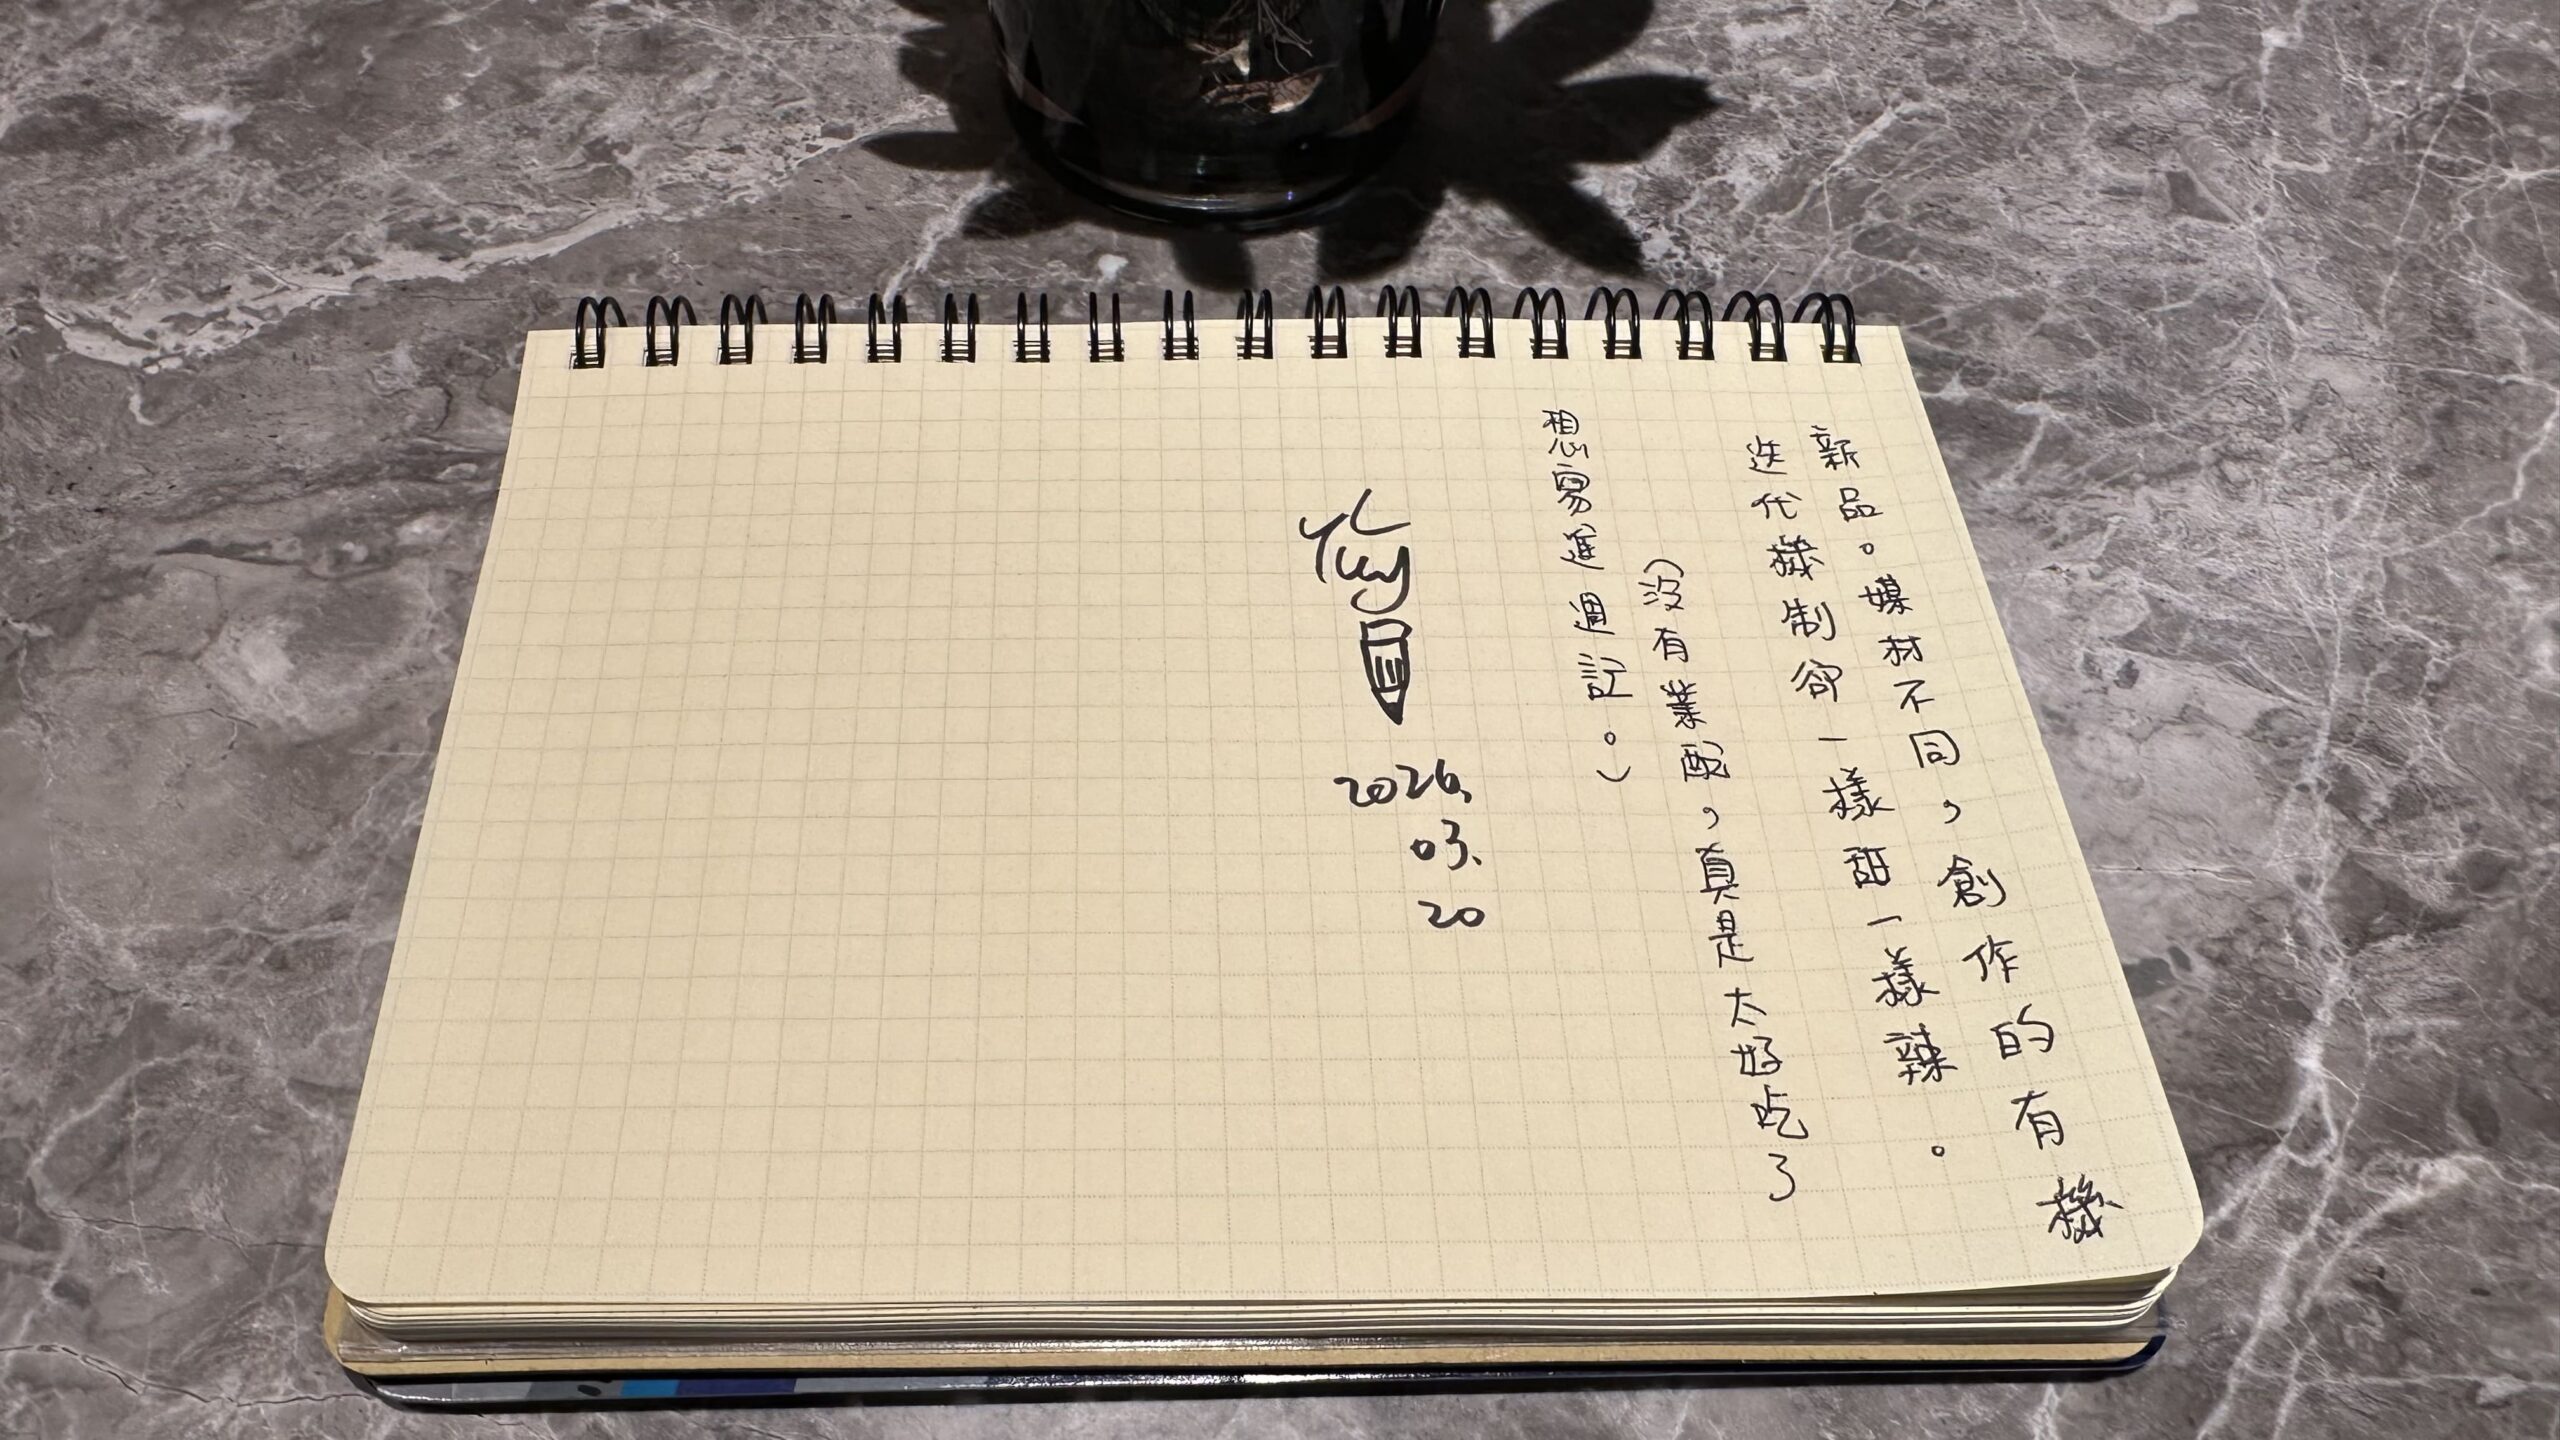 新品。媒材不同，創作的有機
迭代機制卻一樣甜一樣辣。
（沒有業配，真是太好吃了
想寫進週記。）
2026.
03.
20